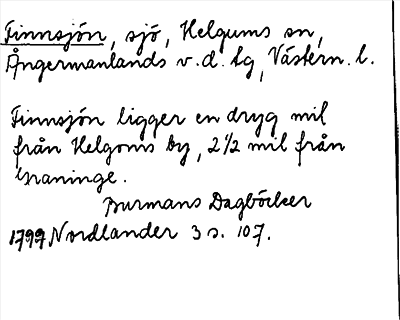 Finnsjön, sjö, Helgums sn,
Ångermanlands v.d. tg, Västern. l.
Finnsjön ligger en dryg mil
från Helgoms by, 2 1/2 mil från
Graninge.
Burmans Dagböcker
1797 Nordlander 3 s. 107.